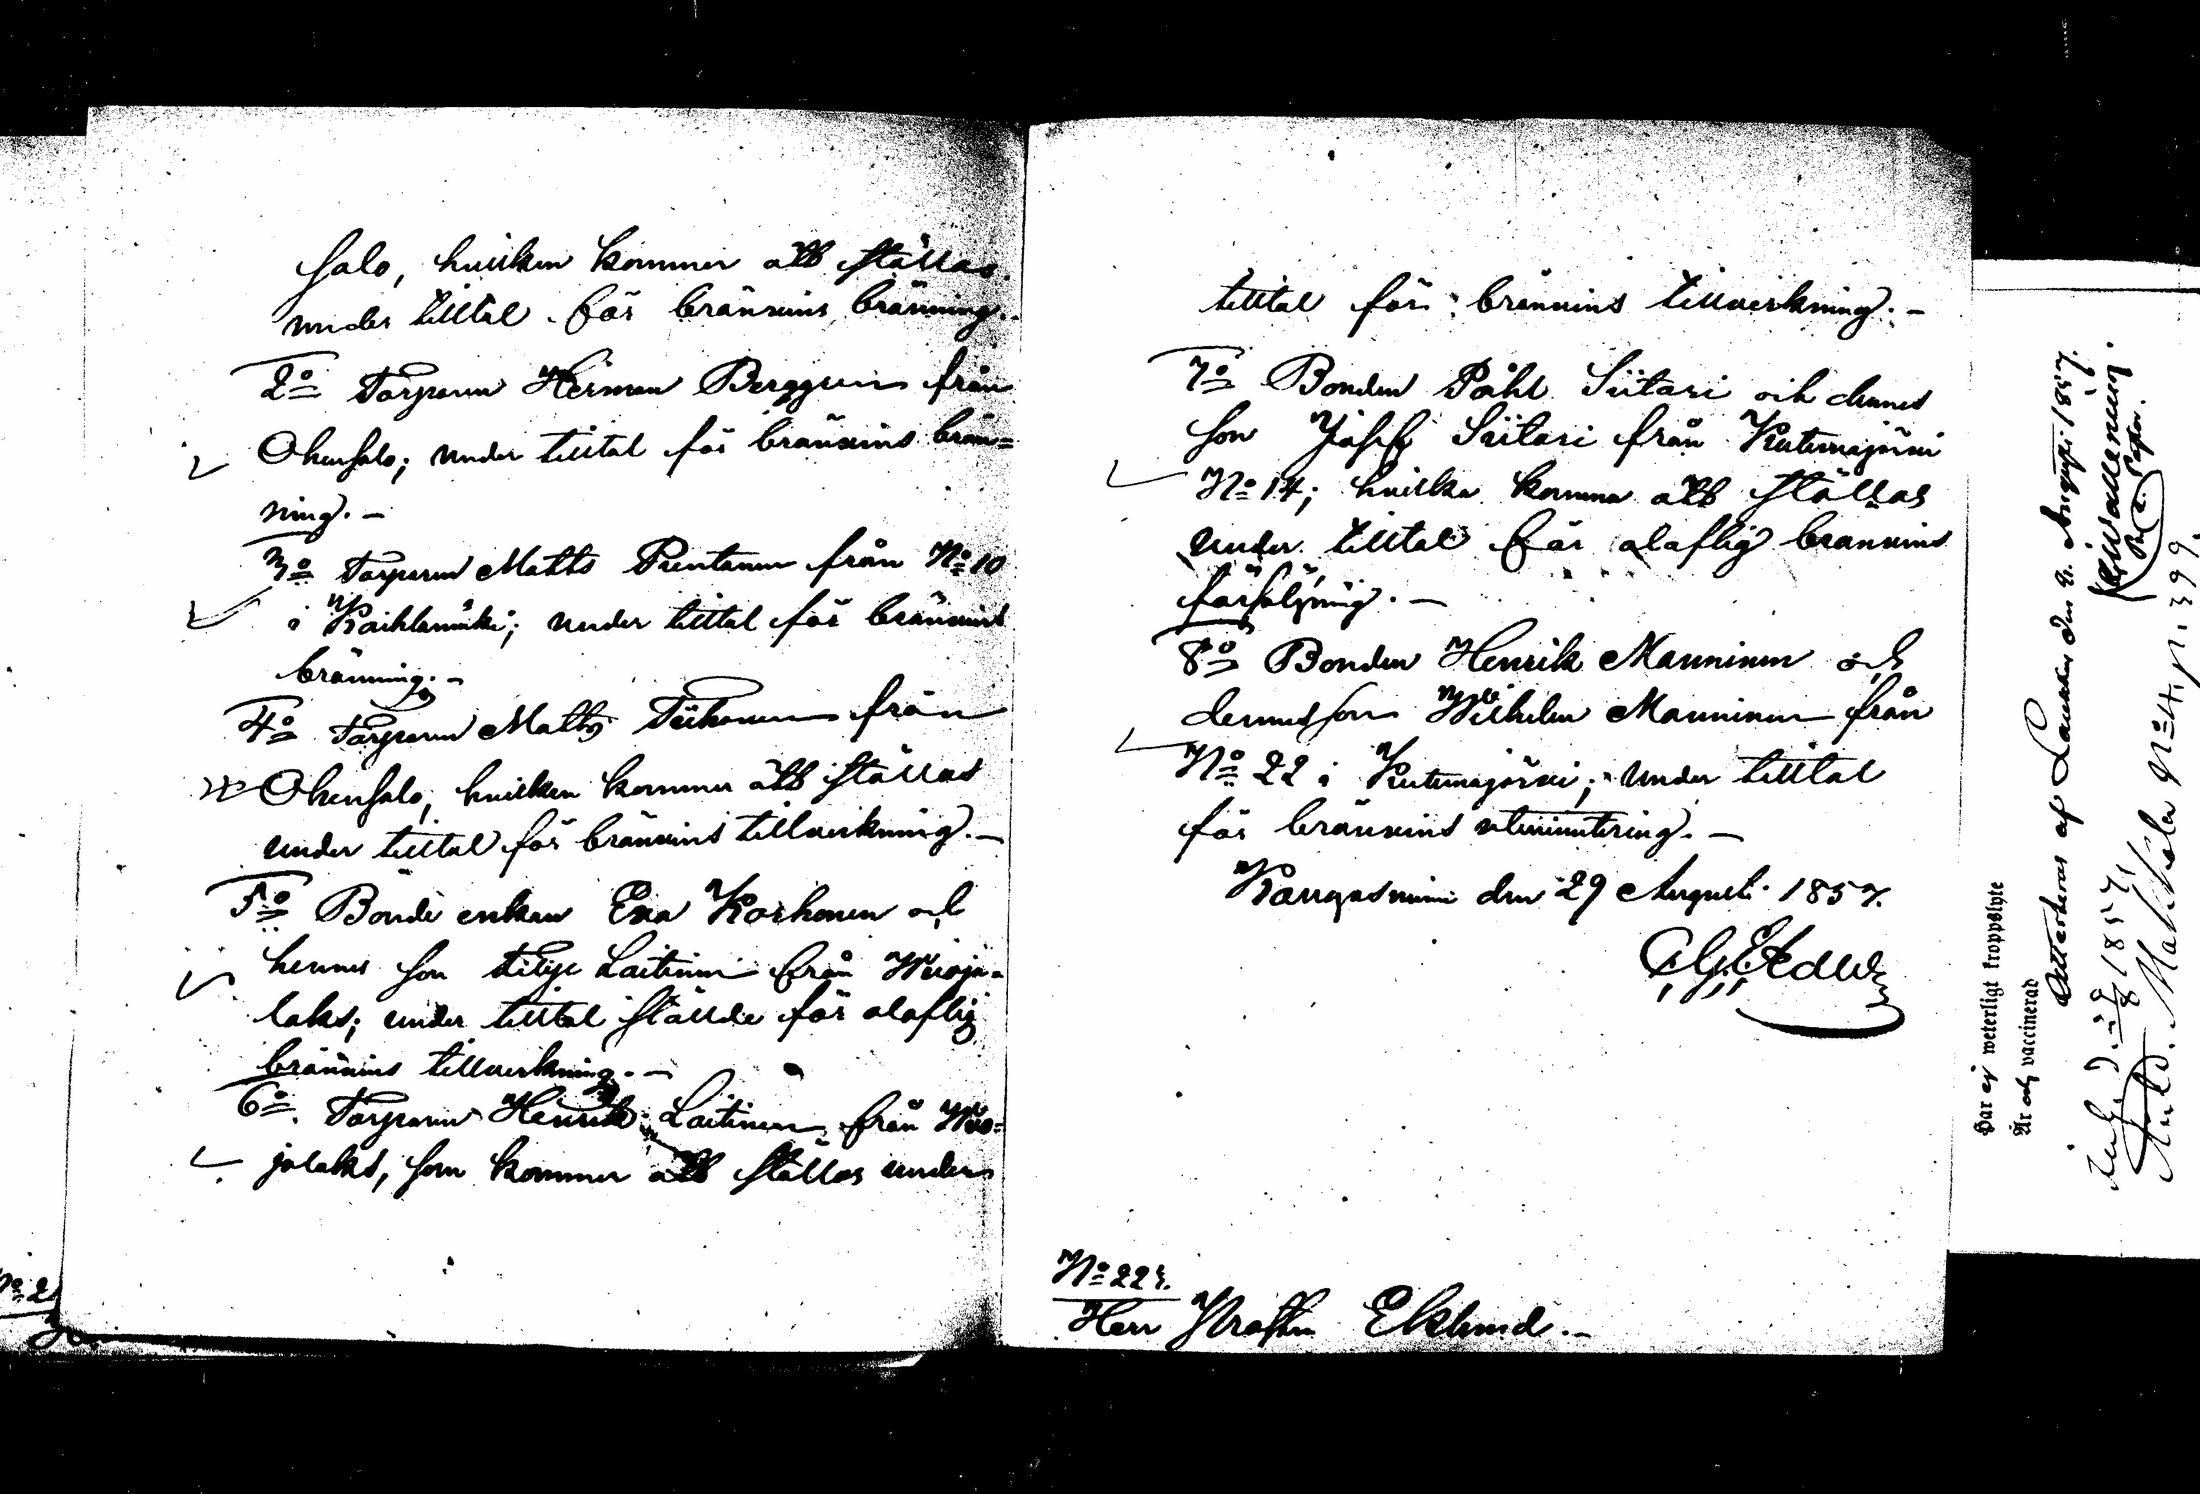 salo, hvilken kommer att ställas
under tilltal för bränvins bränning.
2o Torparen Herman Berggren från
Ohensalo; under tilltal för bränvins brän=
ning. –
3o Torparen Matts Pentanen från No 10
i Kaihlamäki; under tilltal för bränvins
bränning. –
4o Torparen Matts Tiihonen från
Ohensalo, hvilken kommer att ställas
under tilltal för bränvins tillverkning. –
5o Bonde enkan Eva Korhonen och
hennes son Filip Laitinen från Wuoja=
laks; under tilltal stälde för olaflig
bränvins tillverkning. –
6o Torparen Henrik Laitinen från Wuo=
jalaks, som kommer att ställas under
tilltal för bränvins tillverkning. –
7o Bonden Påhl Siitari och dennes
son Josef Siitari från Kutemajärvi
No 14; hvilka komma att ställas
under tilltal för olaflig bränvins
försäljning. –
8o Bonden Henrik Manninen och
dennes son Wilhelm Manninen från
No 22 i Kutemajärvi; under tilltal
för bränvins utminutering. –
Kangasniemi den 29 Augusti 1857.
No 223.
Herr Prosten Eklund. –
No 2
Har ej weterligt kroppslyte
Är och vaccinerad
Attesteras af Laukas den 2. Augusti 1857.
Wallenius.
Pastor.
1857
No 4, p. 399.